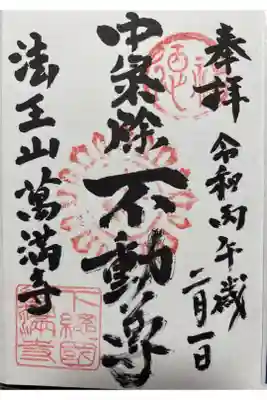 奉拝
令和丙午歳
二月一日
中気除
不動尊
法王山萬満寺
下総国
萬満寺